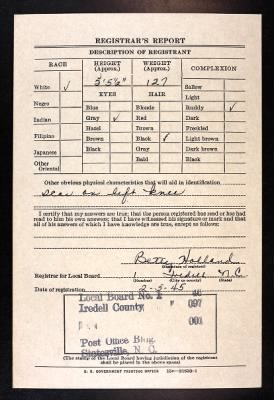 REGISTRAR'S REPORT
DESCRIPTION OF REGISTRANT
RACE HEIGHT (Approx.) WEIGHT (Approx.) COMPLEXION
White ✓ 5'5½" 127 Sallow
EYES HAIR Light
Negro Blue Blonde Ruddy ✓
Indian Gray ✓ Red Dark
Hazel Brown Freckled
Filipino Brown Black ✓ Light brown
Japanese Black Gray Dark brown
Other Oriental Bald Black
Other obvious physical characteristics that will aid in identification
Scar on left knee
I certify that my answers are true; that the person registered has read or has had read to him his own answers; that I have witnessed his signature or mark and that all of his answers of which I have knowledge are true, except as follows:
Betty Holland
(Signature of registrar)
Registrar for Local Board 1 Iredell N.C.
(Number) (City or county) (State)
Date of registration 2-5-45
Local Board No. 1 46
Iredell County 097
001
Post Office Bldg.
Statesville, N.C.
(The stamp of the Local Board having jurisdiction of the registrant shall be placed in the above space)
U. S. GOVERNMENT PRINTING OFFICE